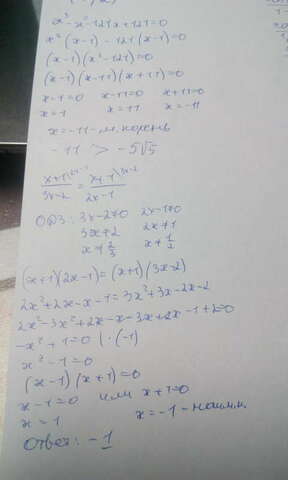 x³-x²-121x+121=0
x²(x-1)-121(x-1)=0
(x-1)(x²-121)=0
(x-1)(x-11)(x+11)=0
x-1=0 x-11=0 x+11=0
x=1 x=11 x=-11
x=-11-м.корень
-11 > -5√5
x+1|2x-1 / 3x-2 = x+1|3x-2 / 2x-1
ОДЗ: 3x-2≠0 2x-1≠0
3x≠2 2x≠1
x≠2/3 x≠1/2
(x+1)(2x-1)=(x+1)(3x-2)
2x²+2x-x-1=3x²+3x-2x-2
2x²-3x²+2x-x-3x+2x-1+2=0
-x²+1=0 |·(-1)
x²-1=0
(x-1)(x+1)=0
x-1=0 или x+1=0
x=1 x=-1-наим.
Ответ: -1